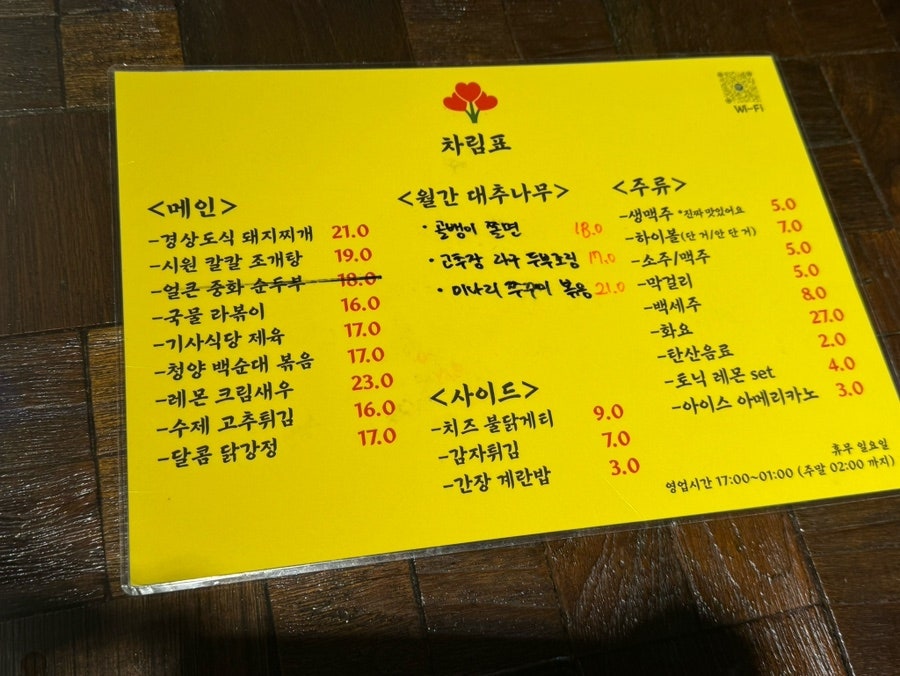 Wi-Fi
차림표
<메인>
-경상도식 돼지찌개 21.0
-시원 칼칼 조개탕 19.0
-얼큰 중화 순두부 18.0
-국물 라볶이 16.0
-기사식당 제육 17.0
-청양 백순대 볶음 17.0
-레몬 크림새우 23.0
-수제 고추튀김 16.0
-달콤 닭강정 17.0
<월간 대추나무>
· 골뱅이 쫄면 18.0
· 고추장 아구 두부조림 17.0
· 미나리 쭈꾸미 볶음 21.0
<사이드>
-치즈 불닭게티 9.0
-감자튀김 7.0
-간장 계란밥 3.0
<주류>
-생맥주 *진짜 맛있어요 5.0
-하이볼(단 거/안 단 거) 7.0
-소주/맥주 5.0
-막걸리 5.0
-백세주 8.0
-화요 27.0
-탄산음료 2.0
-토닉 레몬 set 4.0
-아이스 아메리카노 3.0
휴무 일요일
영업시간 17:00~01:00 (주말 02:00 까지)